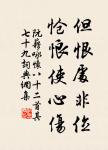 但恨處非位
愴恨使心傷
阮籍詠懷八十二首其
七十九詞典網集